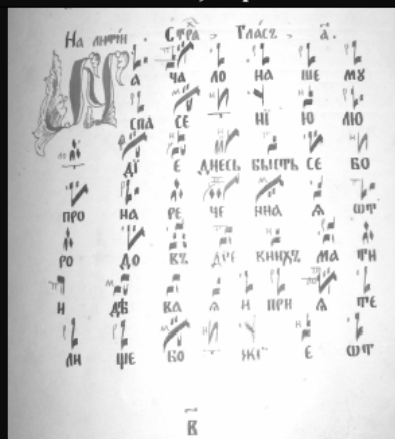 На литїи . Стра̑ , Гласъ . а҃ .
На ча ло на ше му
спа се нї ю лю
дї е днесь бысть се бо
про на ре че нна я ѿт
ро до въ дре внихъ ма ти
и дѣ ва я и при я те
ли ще бо жї е ѿт
в҃